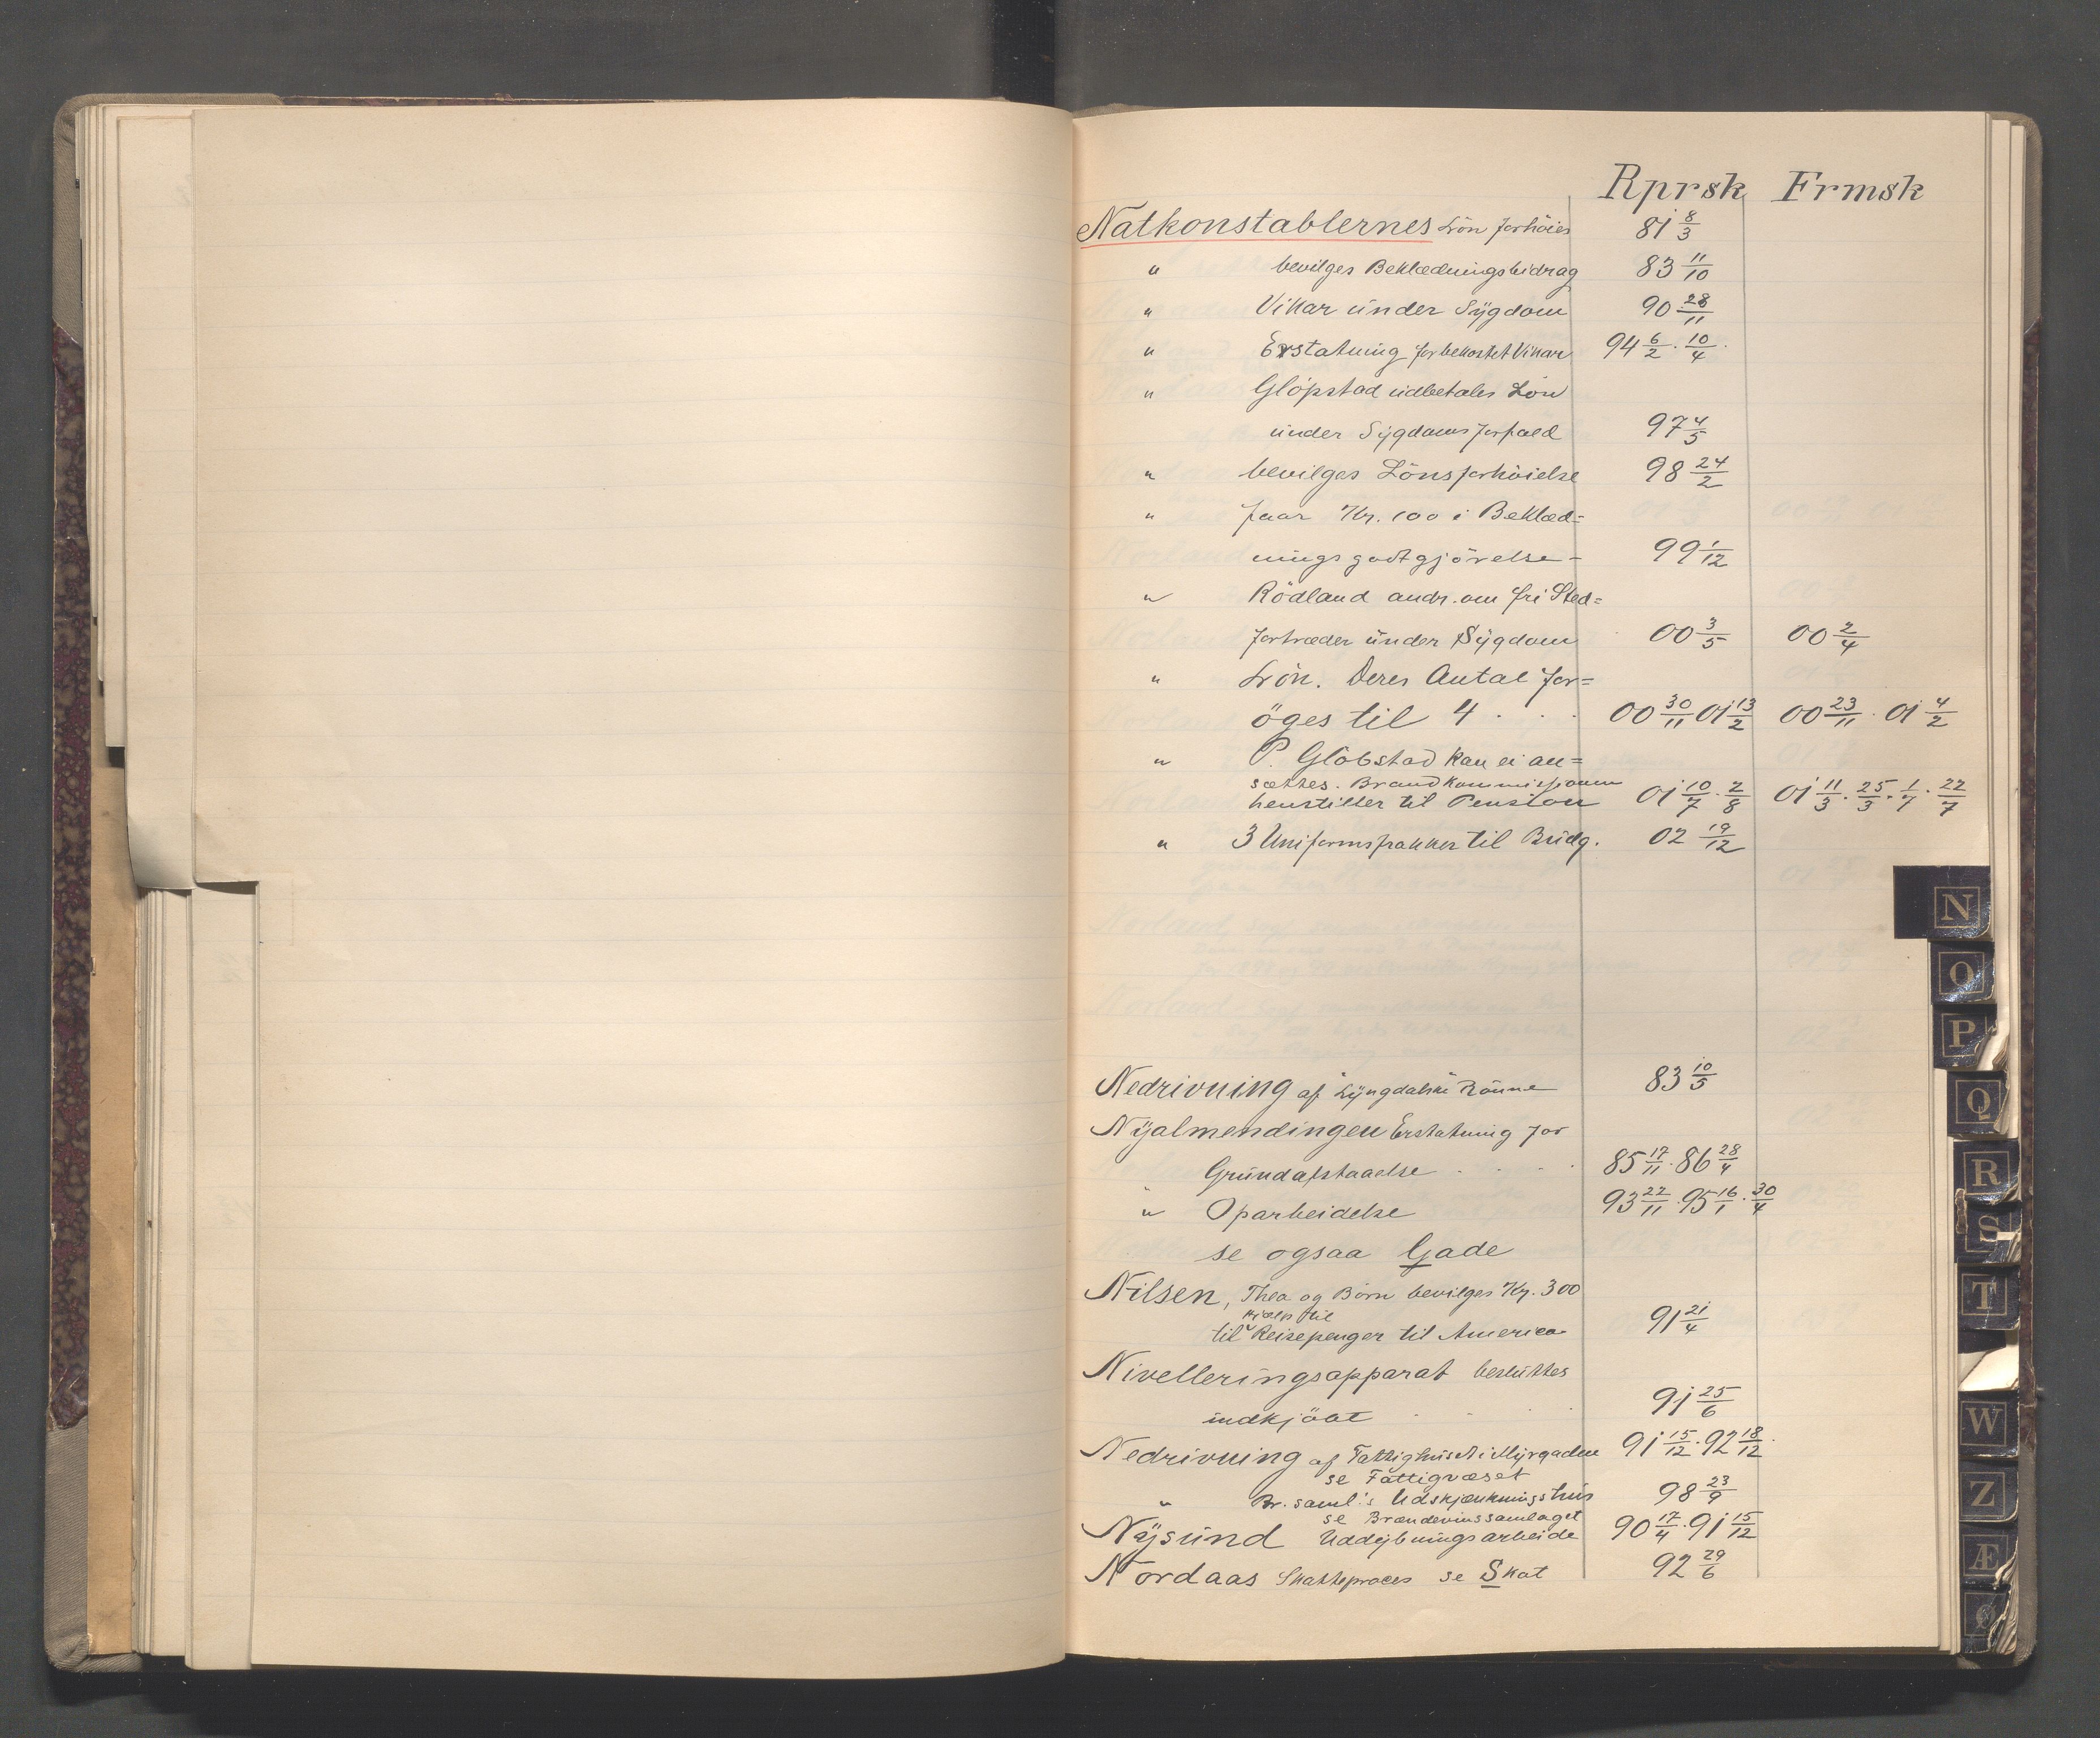 Rprsk Frmsk
Natkonstablernes Lön forhöies 81 8/3
" bevilges Beklædningsbidrag 83 11/10
" Vikar under Sygdom 90 28/11
" Erstatning for bekostet Vikar 94 6/2 . 10/4 .
" Glöpstad udbetales Lön
under Sygdoms forfald 97 4/5
" bevilges Lönsforhöielse 98 24/2
" faar Kr. 100 i Beklæd=
nings godtgjörelse - 99 1/12
" Rödland andr. om fri Sted=
fortræder under Sygdom 00 3/5 00 2/4
" Lön. Deres Antal for=
öges til 4 . . . 00 30/11 01 13/2 00 23/11 . 01 4/2
" P. Glöbstad kan ei an=
sættes. Brandkommissionen
henstiller til Pension 01 10/7 . 2/8 01 11/3 . 25/3 . 1/7 . 22/7
" 3 Uniformsfrakker til Budg. 02 19/12
Nedrivning af Lyngdalske Rönne 83 10/5
Nyalmendingen Erstatning for
Grundafstaaelse . . . . 85 17/11 . 86 28/4
" Oparbeidelse 93 22/11 . 95 16/1 . 30/4
se ogsaa Gade
Nilsen, Thea og Börn bevilges Kr. 300
hjælp til
til Reisepenger til America 91 21/4
Nivelleringsapparat besluttes
indkjöbt . . . 91 25/6
Nedrivning af Fattighuset i Myrgaden 91 15/12 . 92 18/12 .
se Fattigvæset
" Br. saml.'s Udskjænkningshus 98 23/9
se Brændevinssamlaget
Nysund Uddybningsarbeide 90 17/4 . 91 15/12
Nordaas Skatteproces se Skat 92 29/6
N
O
P
Q
R
S
T
W
Z
Æ
Ø